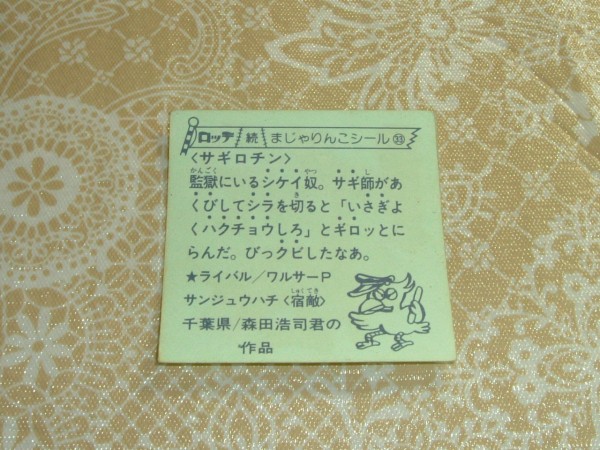 ロッテ 続 まじゃりんこシール㉝
〈サギロチン〉
監獄にいるシケイ奴。サギ師があ
くびしてシラを切ると「いさぎよ
くハクチョウしろ」とギロッとに
らんだ。びっクビしたなあ。
★ライバル/ワルサーP
サンジュウハチ〈宿敵〉
千葉県/森田浩司君の
作品